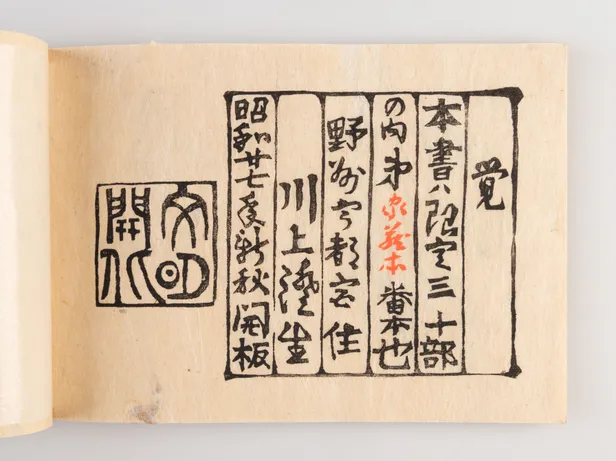 覚
本書ハ限定三十部
の内㐧家蔵本番本也
野州宇都宮住
川上澄生
昭和廿七年新秋開板
文明
開化